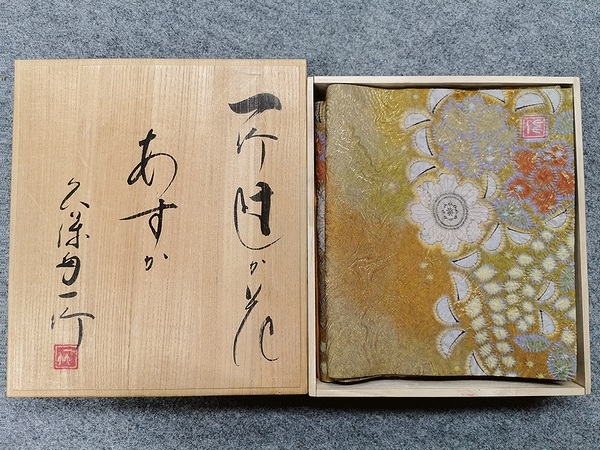 一竹辻か花
あすか
久保田一竹